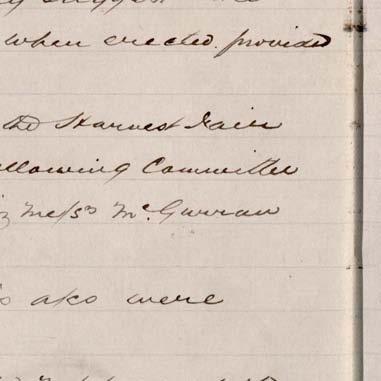 when erected provided
the Harvest Fair
ollowing Committee
Messrs McGurran
also were